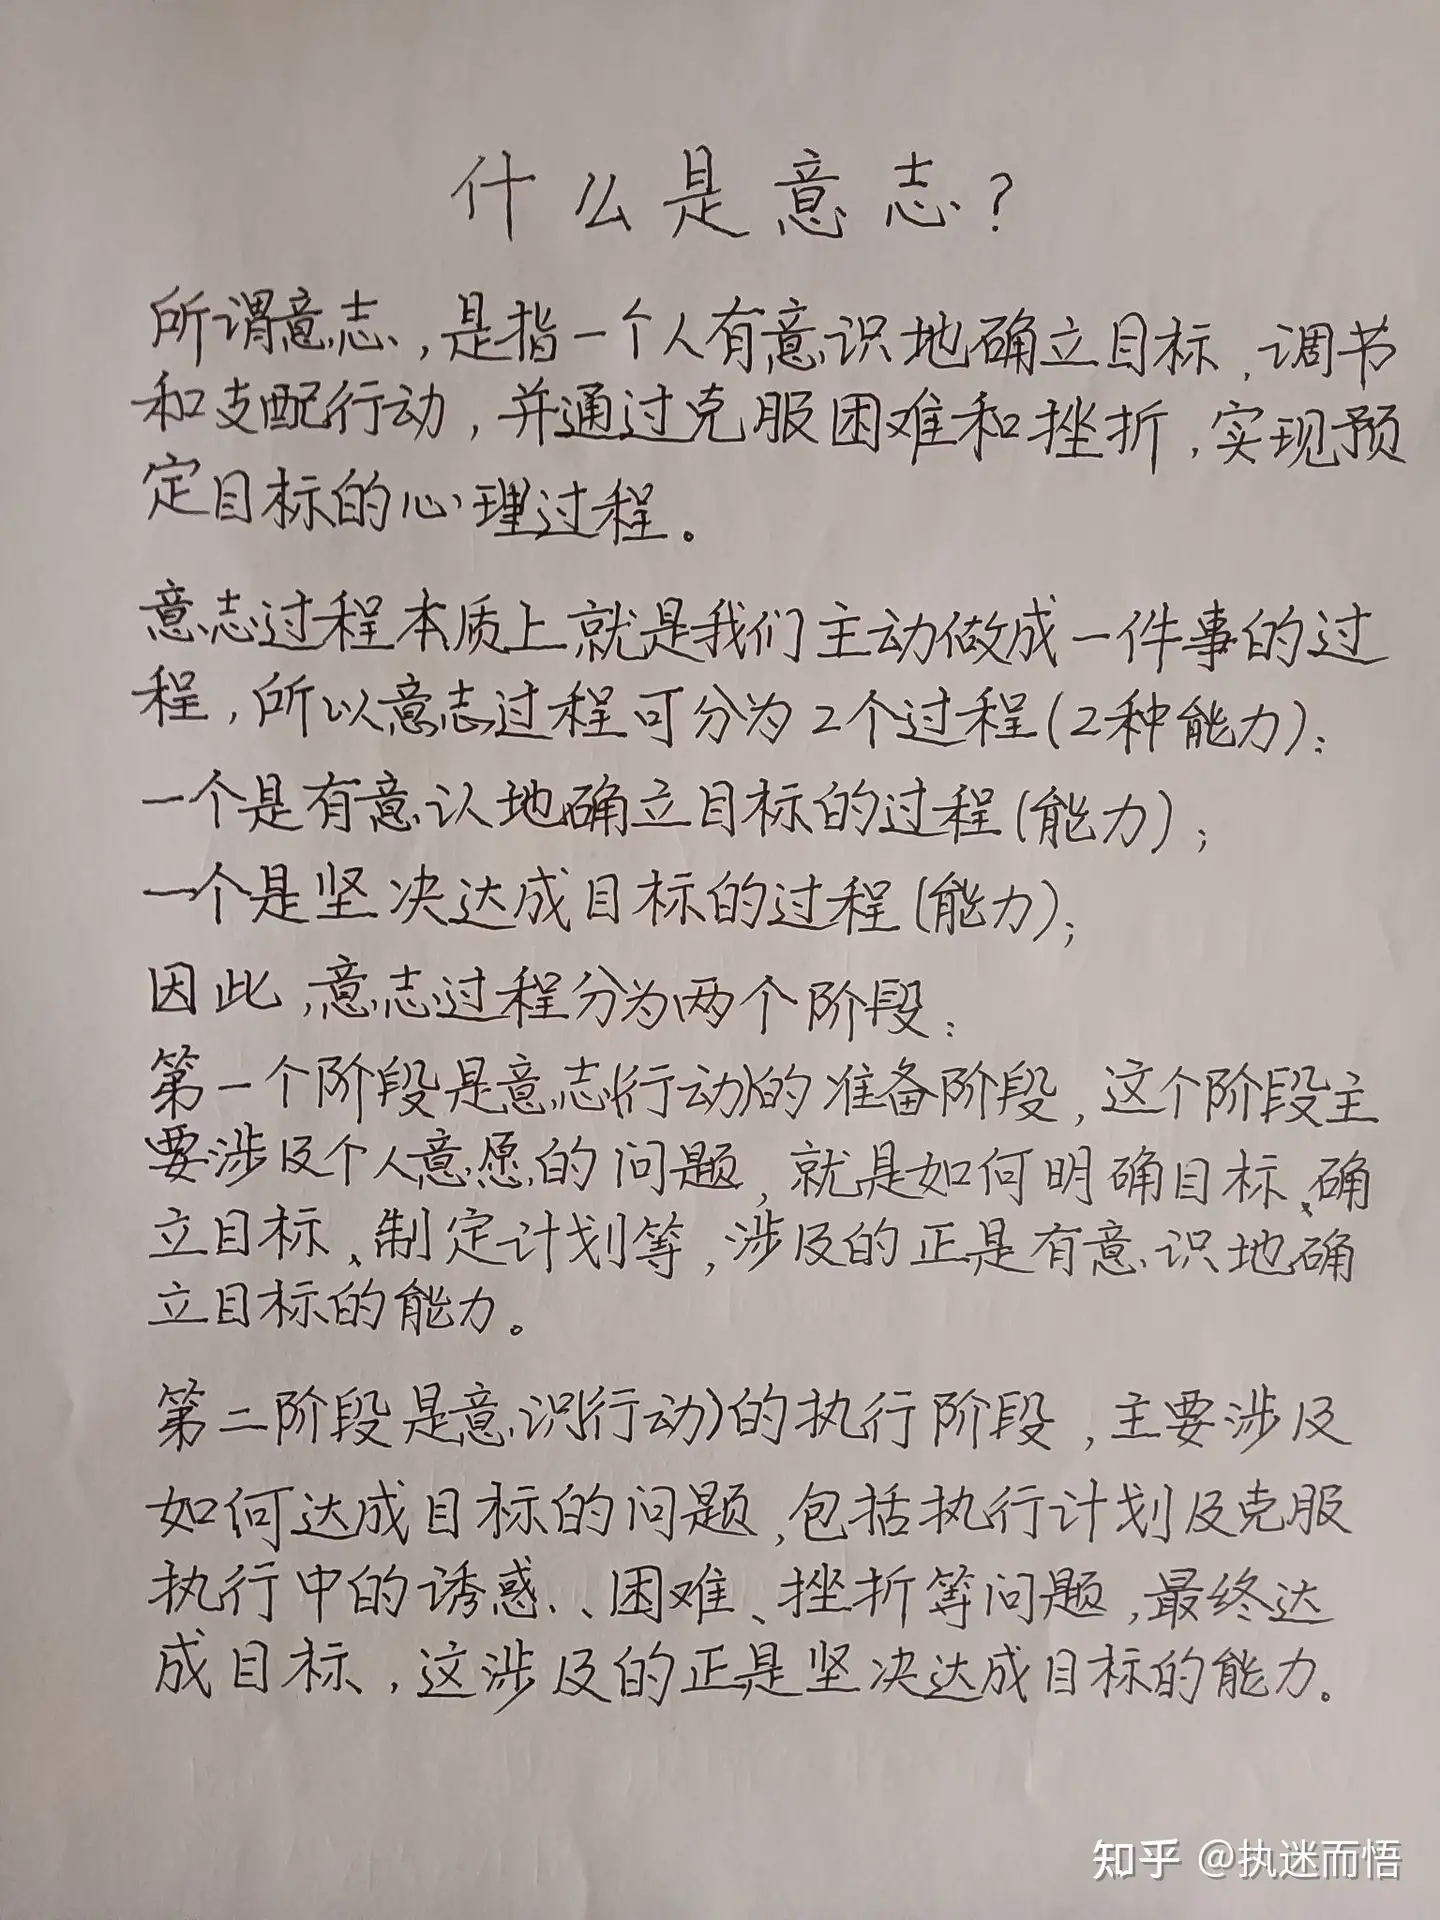 什么是意志？
所谓意志，是指一个人有意识地确立目标，调节
和支配行动，并通过克服困难和挫折，实现预
定目标的心理过程。
意志过程本质上就是我们主动做成一件事的过
程，所以意志过程可分为2个过程(2种能力)：
一个是有意认地确立目标的过程(能力)；
一个是坚决达成目标的过程(能力)；
因此，意志过程分为两个阶段：
第一个阶段是意志(行动)的准备阶段，这个阶段主
要涉及个人意愿的问题，就是如何明确目标、确
立目标、制定计划等，涉及的正是有意识地确
立目标的能力。
第二阶段是意识(行动)的执行阶段，主要涉及
如何达成目标的问题，包括执行计划及克服
执行中的诱惑、困难、挫折等问题，最终达
成目标，这涉及的正是坚决达成目标的能力。
知乎 @执迷而悟